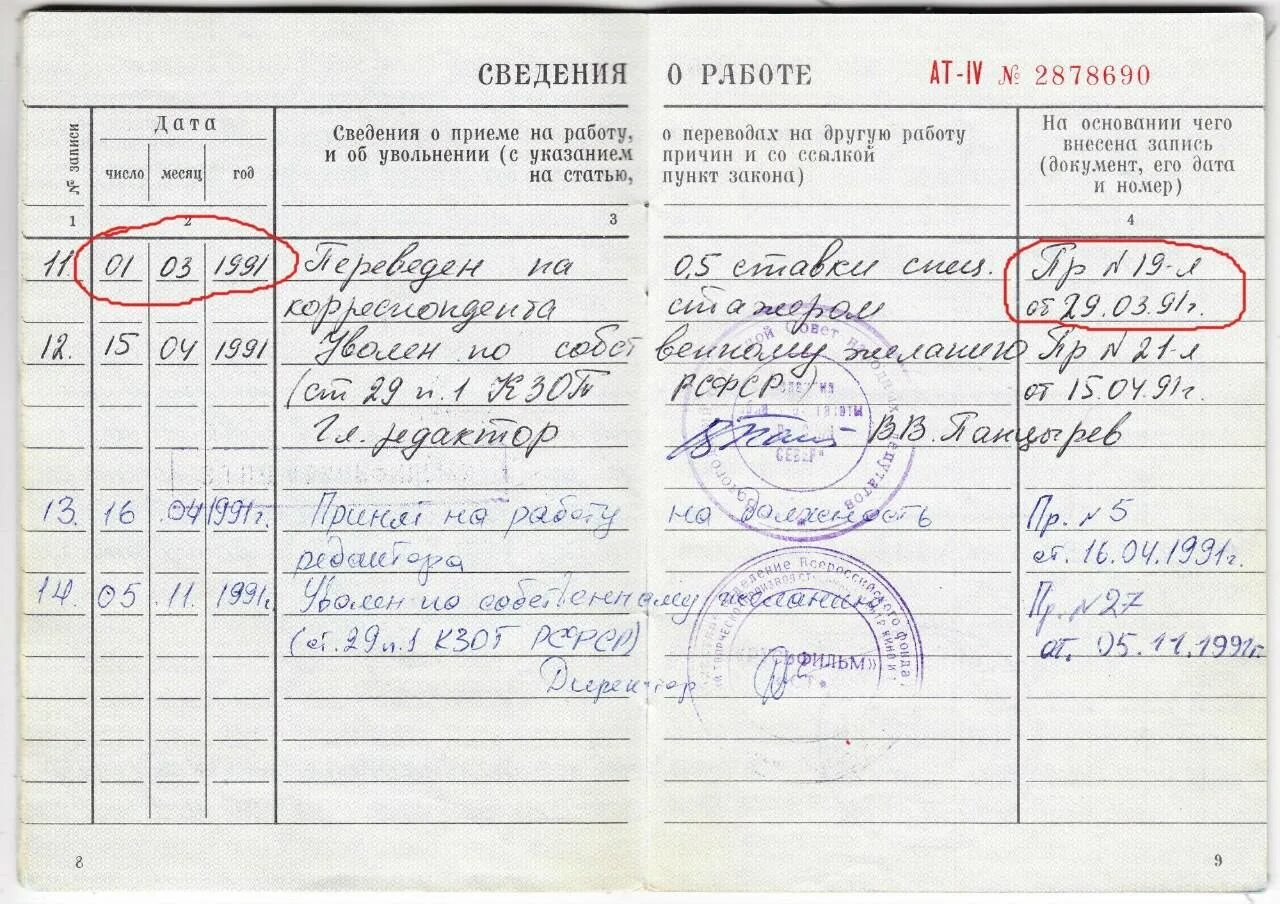 СВЕДЕНИЯ О РАБОТЕ АТ-IV № 2878690
№ записи
Дата
число месяц год
Сведения о приеме на работу, о переводах на другую работу
и об увольнении (с указанием причин и со ссылкой
на статью, пункт закона)
На основании чего
внесена запись
(документ, его дата
и номер)
1 2 3 4
11. 01 03 1991 Переведен на 0,5 ставки спец. Пр N 19-л
корреспондента стажером от 29.03.91г.
12. 15 04 1991 Уволен по собственному желанию Пр N 21-л
(ст 29 п.1 КЗОТ РСФСР) от 15.04.91г.
Гл. редактор В.В. Панцырев
СЕВЕР"
13. 16 04 1991г. Принят на работу на должность Пр. N 5
редактора от. 16.04.1991г.
14. 05 11. 1991г. Уволен по собственному желанию Пр. N 27
(ст. 29 п.1 КЗОТ РСФСР) от. 05.11.1991г.
Директор
Всероссийского фонда
ФИЛЬМ»
8 9